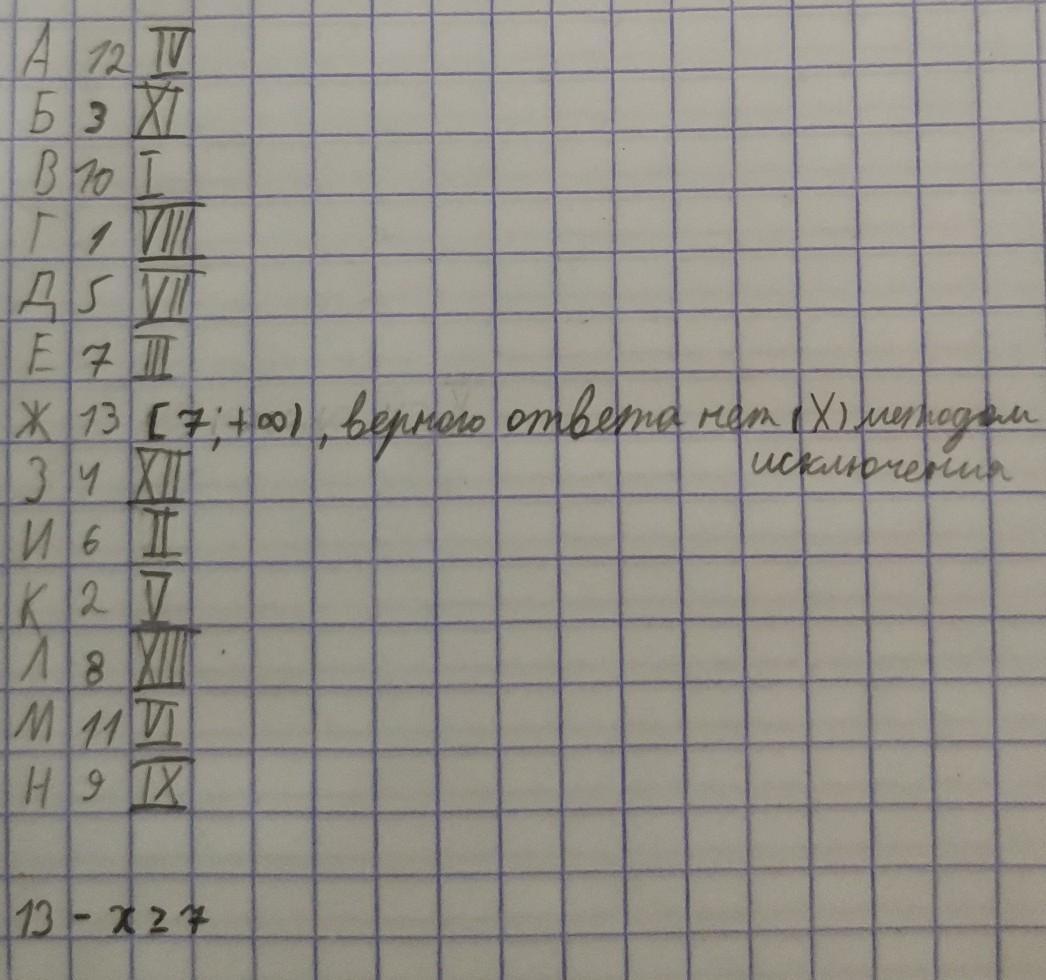 А 12 IV
Б 3 XI
В 10 I
Г 1 VIII
Д 5 VII
Е 7 III
Ж 13 [7;+∞), верного ответа нет (X) методом
исключения
З 4 XII
И 6 II
К 2 V
Л 8 XIII
М 11 VI
Н 9 IX
13 - x ≥ 7